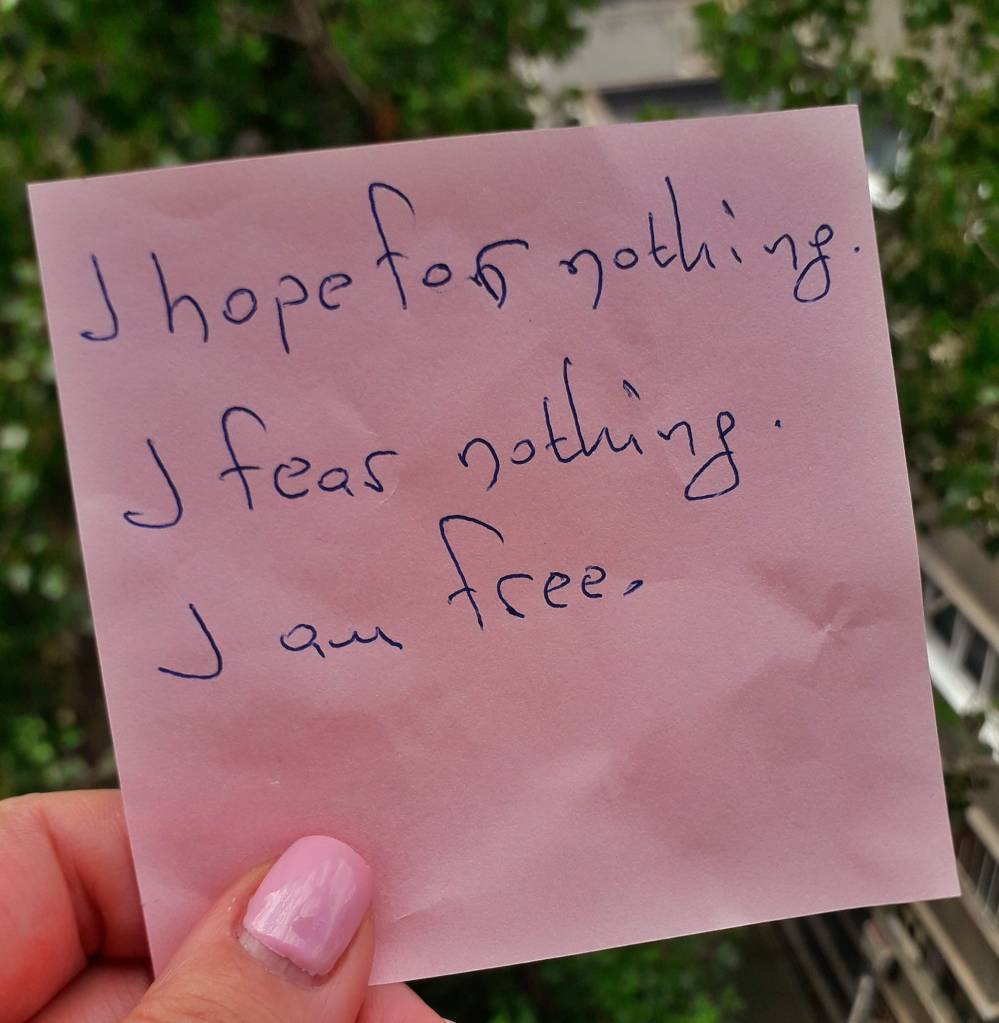 I hope for nothing.
I fear nothing.
I am free.